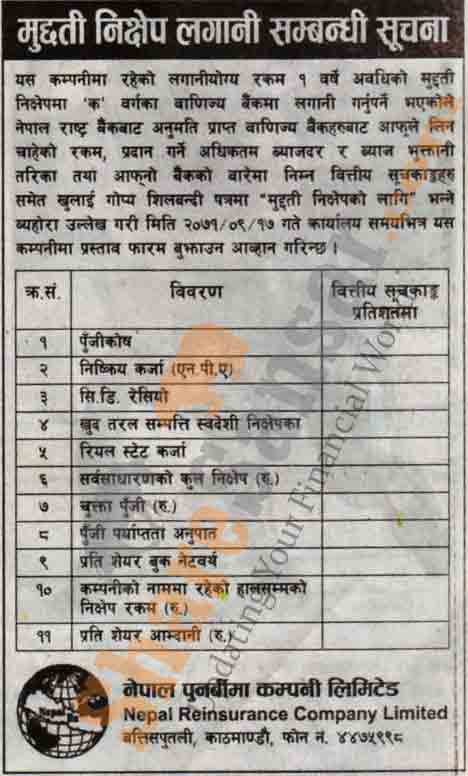 मुद्दती निक्षेप लगानी सम्बन्धी सूचना
यस कम्पनीमा रहेको लगानीयोग्य रकम १ वर्षे अवधिको मुद्दती
निक्षेपमा 'क' वर्गका वाणिज्य बैंकमा लगानी गर्नुपर्ने भएकोले
नेपाल राष्ट्र बैंकबाट अनुमति प्राप्त वाणिज्य बैंकहरुबाट आफुले लिन
चाहेको रकम, प्रदान गर्ने अधिकतम ब्याजदर र ब्याज भुक्तानी
तरिका तथा आफ्नो बैंकको बारेमा निम्न वित्तीय सूचकाङ्कहरु
समेत खुलाई गोप्य शिलबन्दी पत्रमा "मुद्दती निक्षेपको लागि" भन्ने
ब्यहोरा उल्लेख गरी मिति २०७१/०९/१७ गते कार्यालय समयभित्र यस
कम्पनीमा प्रस्ताव फारम बुझाउन आव्हान गरिन्छ ।
क्र.सं. विवरण वित्तीय सूचकाङ्क प्रतिशतमा
१ पुँजीकोष
२ निष्क्रिय कर्जा (एन.पी.ए)
३ सि.डि. रेसियो
४ खुद तरल सम्पत्ति स्वदेशी निक्षेपका
५ रियल स्टेट कर्जा
६ सर्वसाधारणको कुल निक्षेप (रु.)
७ चुक्ता पुँजी (रु.)
८ पुँजी पर्याप्तता अनुपात
९ प्रति शेयर बुक नेटवर्थ
१० कम्पनीको नाममा रहेको हालसम्मको
निक्षेप रकम (रु.)
११ प्रति शेयर आम्दानी (रु.)
नेपाल पुनर्बीमा कम्पनी लिमिटेड
Nepal Reinsurance Company Limited
बत्तिसपुतली, काठमाण्डौ, फोन नं. ४४७५९९८
Nepal Re